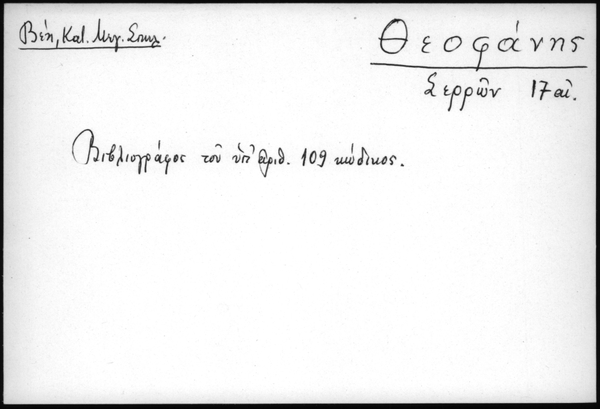 Βέη, Κατ. Μεγ. Σπηλ.
Θεοφάνης
Σερρῶν 17 αἰ.
Βιβλιογράφος τοῦ ὑπ' ἀριθ. 109 κώδικος.